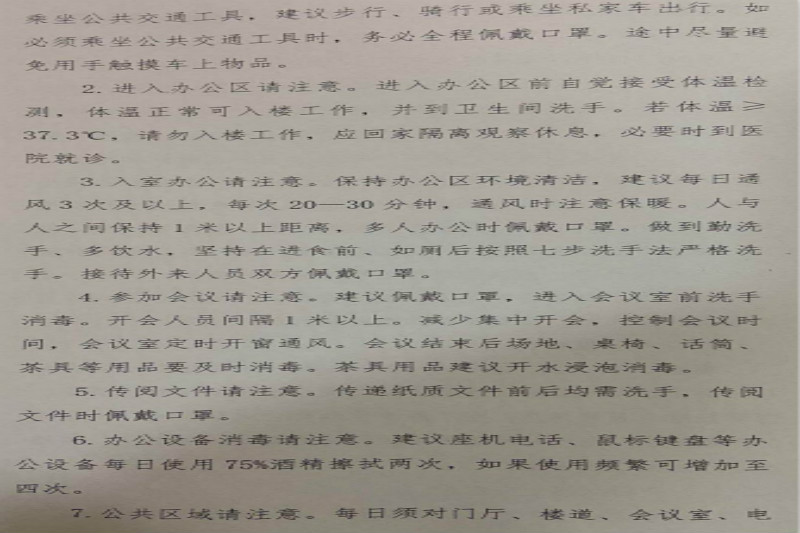 乘坐公共交通工具，建议步行、骑行或乘坐私家车出行。如
必须乘坐公共交通工具时，务必全程佩戴口罩。途中尽量避
免用手触摸车上物品。
2.进入办公区请注意。进入办公区前自觉接受体温检
测，体温正常可入楼工作，并到卫生间洗手。若体温≥
37.3℃，请勿入楼工作，应回家隔离观察休息，必要时到医
院就诊。
3.入室办公请注意。保持办公区环境清洁，建议每日通
风3次及以上，每次20—30分钟，通风时注意保暖。人与
人之间保持1米以上距离，多人办公时佩戴口罩。做到勤洗
手、多饮水，坚持在进食前、如厕后按照七步洗手法严格洗
手。接待外来人员双方佩戴口罩。
4.参加会议请注意。建议佩戴口罩，进入会议室前洗手
消毒。开会人员间隔1米以上。减少集中开会，控制会议时
间，会议室定时开窗通风。会议结束后场地、桌椅、话筒、
茶具等用品要及时消毒。茶具用品建议开水浸泡消毒。
5.传阅文件请注意。传递纸质文件前后均需洗手，传阅
文件时佩戴口罩。
6.办公设备消毒请注意。建议座机电话、鼠标键盘等办
公设备每日使用75%酒精擦拭两次，如果使用频繁可增加至
四次。
7.公共区域请注意。每日须对门厅、楼道、会议室、电